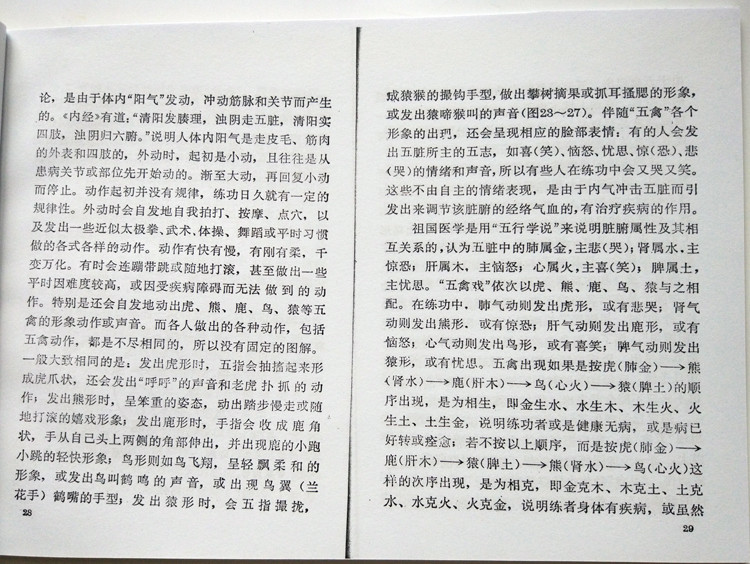 论，是由于体内“阳气”发动，冲动筋脉和关节而产生
的。《内经》有道：“清阳发腠理，浊阴走五脏，清阳实
四肢，浊阴归六腑。”说明人体内阳气是走皮毛、筋肉
的外表和四肢的，外动时，起初是小动，且往往是从
患病关节或部位先开始动的。渐至大动，再回复小动
而停止。动作起初并没有规律，练功日久就有一定的
规律性。外动时会自发地自我拍打、按摩、点穴，以
及发出一些近似太极拳、武术、体操、舞蹈或平时习惯
做的各式各样的动作。动作有快有慢，有刚有柔，千
变万化。有时会连蹦带跳或随地打滚，甚至做出一些
平时因难度较高，或因受疾病障碍而无法做到的动
作。特别是还会自发地动出虎、熊、鹿、鸟、猿等五
禽的形象动作或声音。而各人做出的各种动作，包括
五禽动作，都是不尽相同的，所以没有固定的图解。
一般大致相同的是：发出虎形时，五指会抽搐起来形
成虎爪状，还会发出“呼呼”的声音和老虎扑抓的动
作；发出熊形时，呈笨重的姿态，动出踏步慢走或随
地打滚的嬉戏形象；发出鹿形时，手指会收成鹿角
状，手从自己头上两侧的角部伸出，并出现鹿的小跑
小跳的轻快形象；鸟形则如鸟飞翔，呈轻飘柔和的
形象，或发出鸟叫鹤鸣的声音，或出现鸟翼（兰
花手）鹤嘴的手型；发出猿形时，会五指撮拢，
28
成猿猴的撮钩手型，做出攀树摘果或抓耳搔腮的形象，
或发出猿啼猴叫的声音（图23～27）。伴随“五禽”各个
形象的出现，还会呈现相应的脸部表情；有的人会发
出五脏所主的五志，如喜（笑）、恼怒、忧思、惊（恐）、悲
（哭）的情绪和声音，所以有些人在练功中会又哭又笑。
这些不由自主的情绪表现，是由于内气冲击五脏而引
发出来调节该脏腑的经络气血的，有治疗疾病的作用。
祖国医学是用“五行学说”来说明脏腑属性及其相
互关系的，认为五脏中的肺属金，主悲（哭）；肾属水，主
惊恐；肝属木，主恼怒；心属火，主喜（笑）；脾属土，
主忧思。“五禽戏”依次以虎、熊、鹿、鸟、猿与之相
配。在练功中，肺气动则发出虎形，或有悲哭；肾气
动则发出熊形，或有惊恐；肝气动则发出鹿形，或有
恼怒；心气动则发出鸟形，或有喜笑；脾气动则发出
猿形，或有忧思。五禽出现如果是按虎（肺金）→熊
（肾水）→鹿（肝木）→鸟（心火）→猿（脾土）的顺
序出现，是为相生，即金生水、水生木、木生火、火
生土、土生金，说明练功者或是健康无病，或是病已
好转或痊愈；若不按以上顺序，而是按虎（肺金）→
鹿（肝木）→猿（脾土）→熊（肾水）→鸟（心火）这
样的次序出现，是为相克，即金克木、木克土、土克
水、水克火、火克金，说明练者身体有疾病，或虽然
29